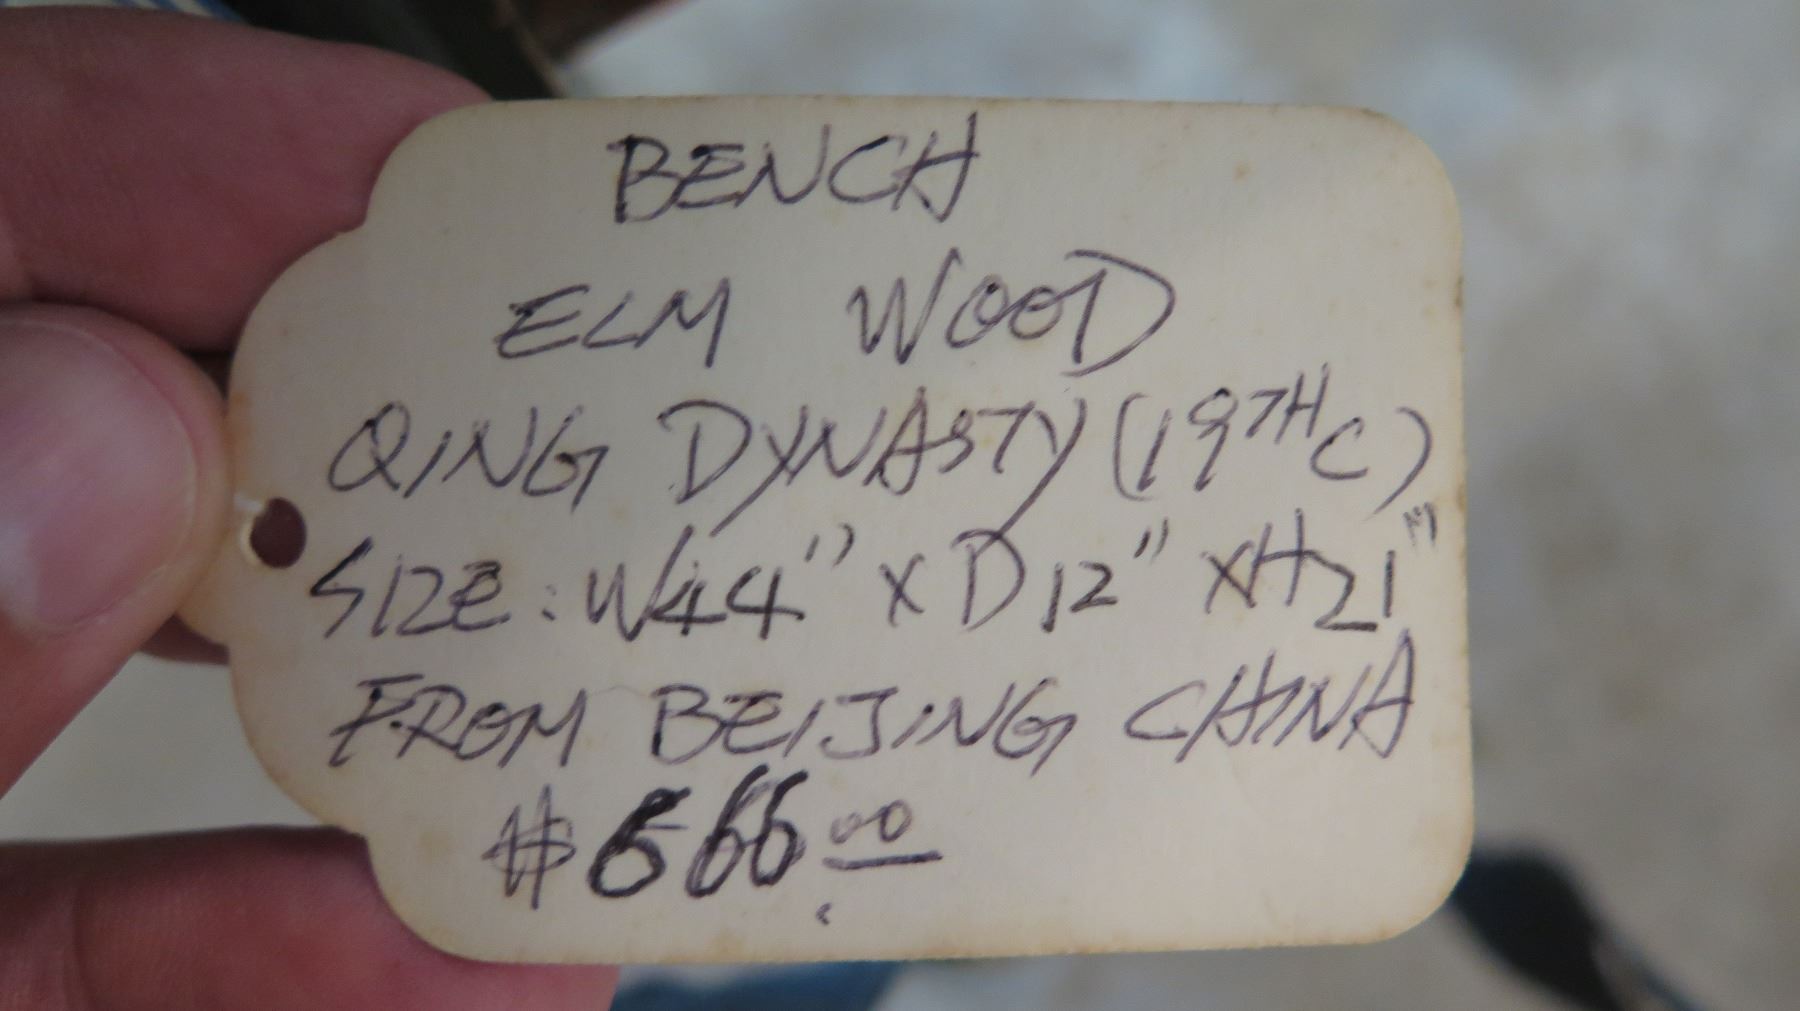 BENCH
ELM WOOD
QING DYNASTY (19TH C)
SIZE: W44" X D12" X H21"
FROM BEIJING CHINA
$666.00